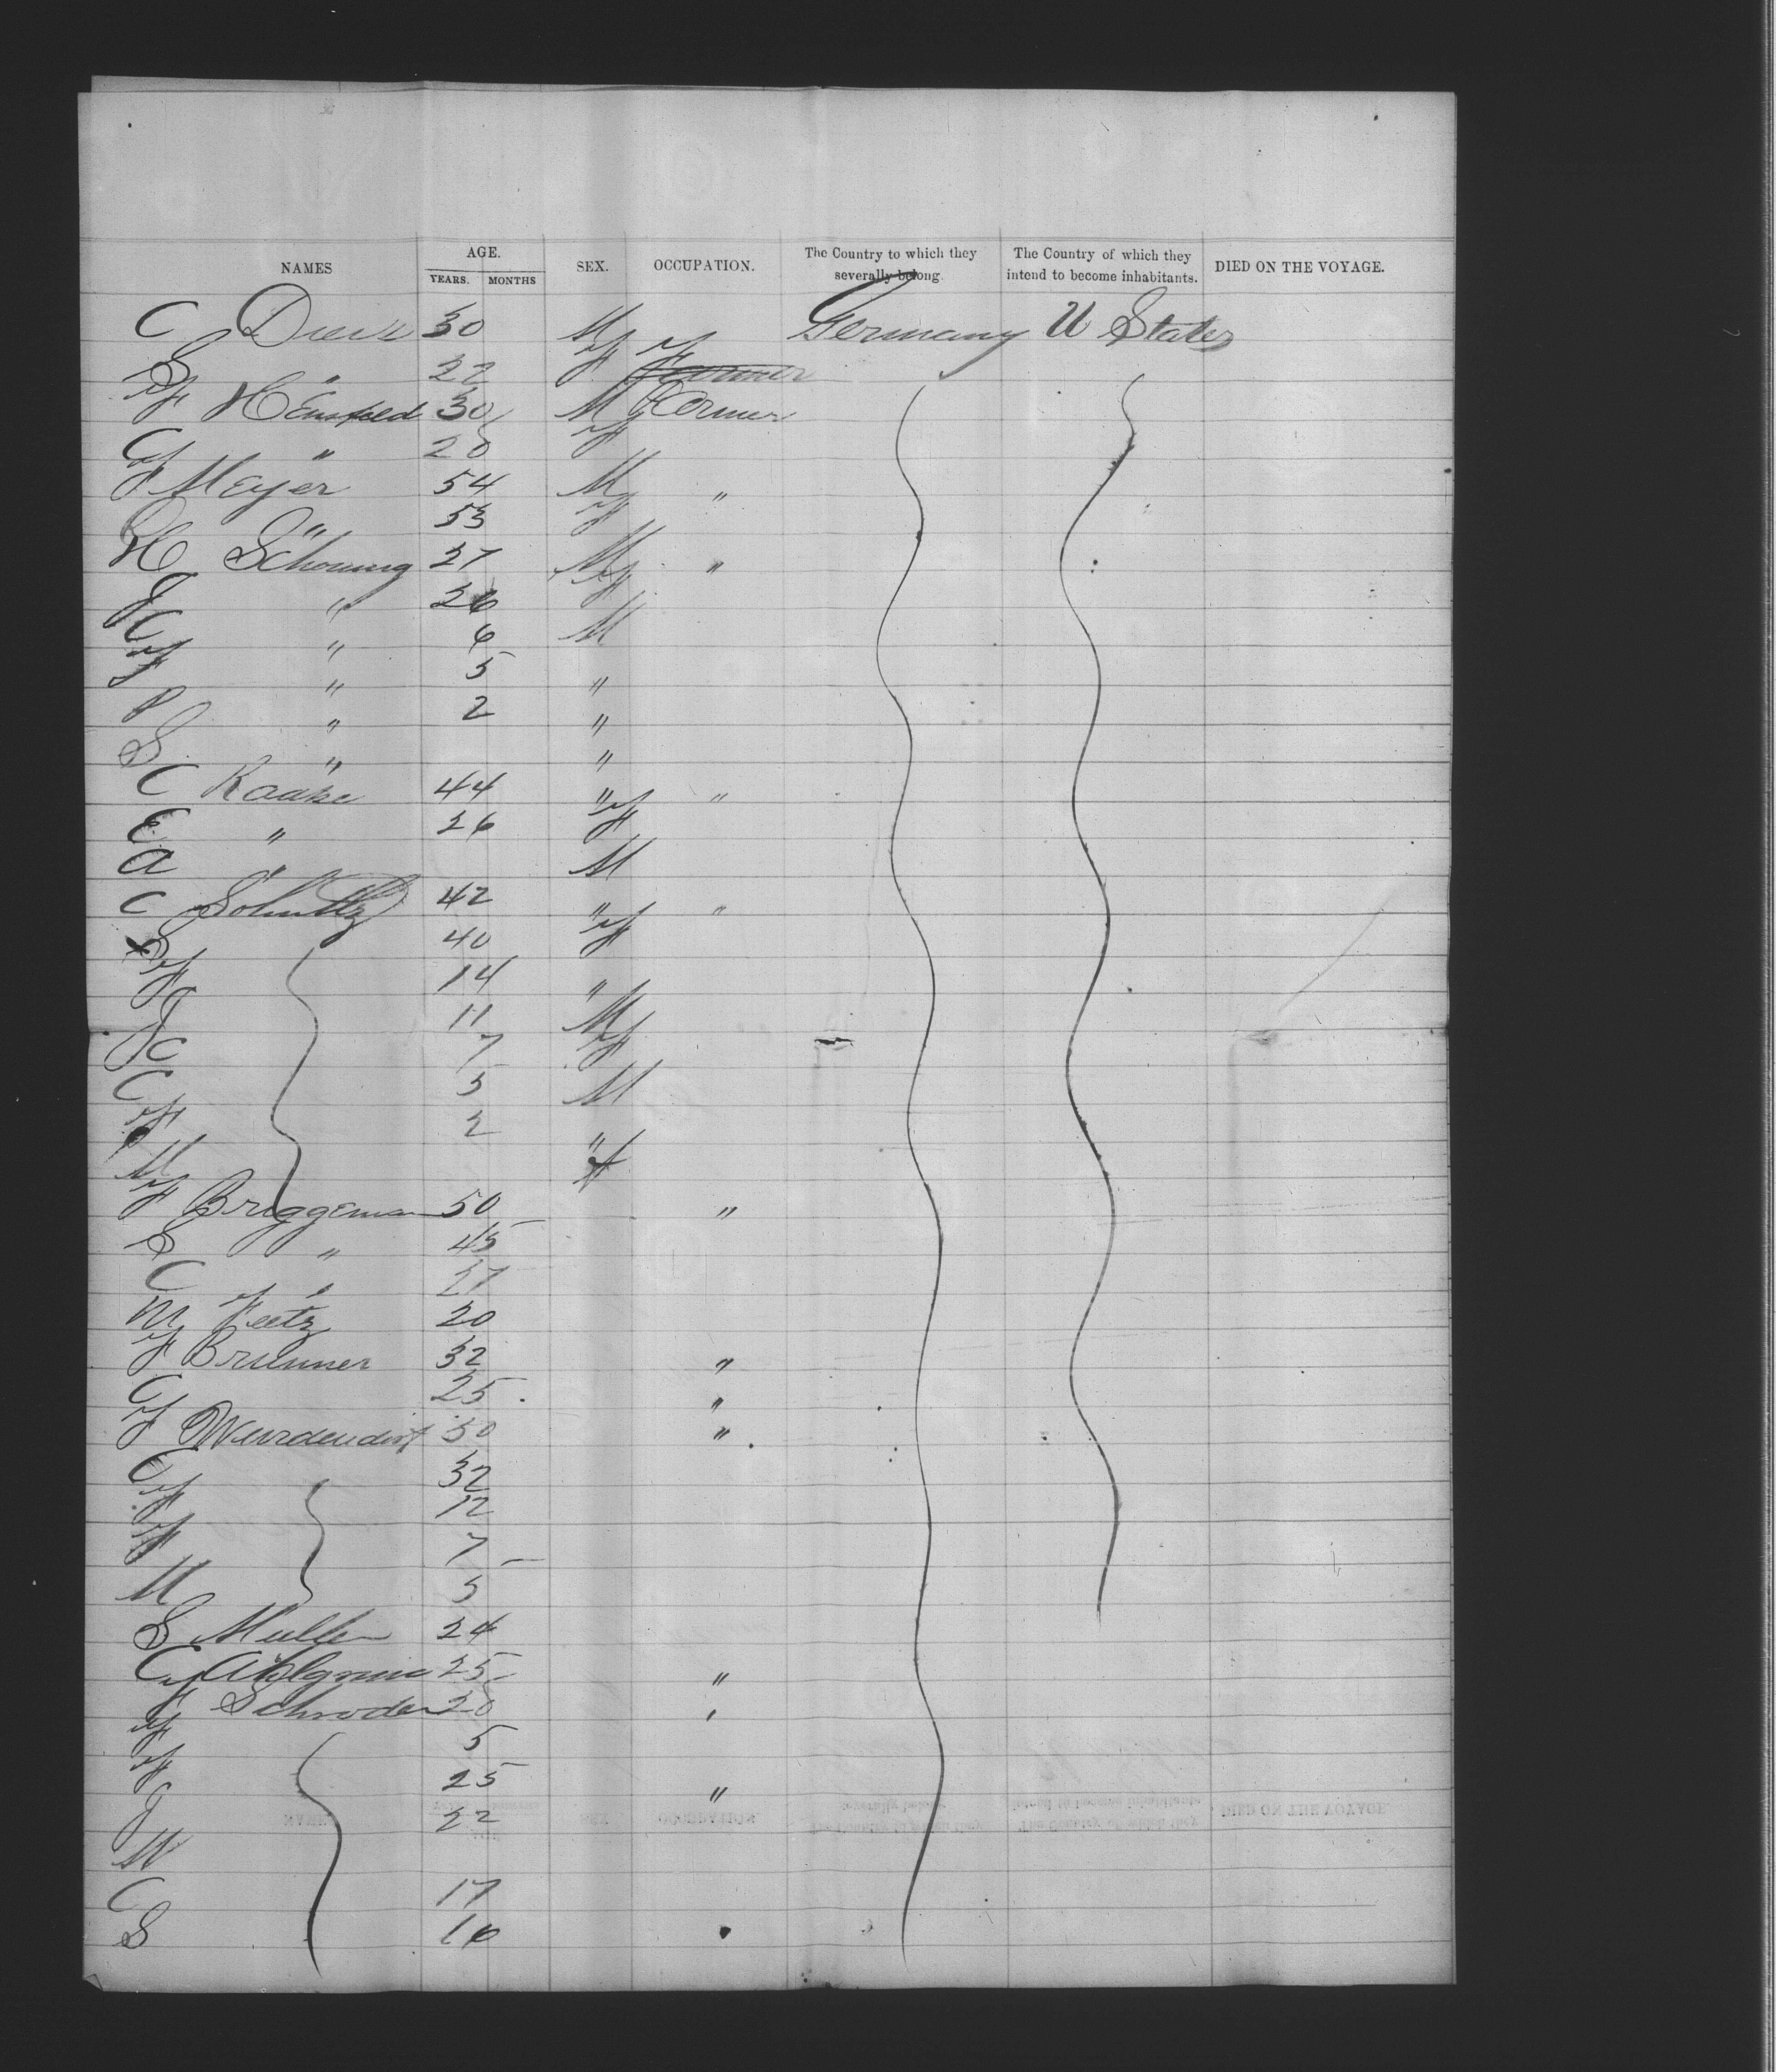 NAMES AGE. YEARS. MONTHS SEX. OCCUPATION. The Country to which they severally belong. The Country of which they intend to become inhabitants. DIED ON THE VOYAGE.
C 30 M Germany U States
S " 22 F Farmer
F 30 M Farmer
C " 28 F
F Meyer 54 M "
" 53 F
H Schoning 27 M "
J " 26 F
C " 6 M
F " 5 "
P " 2 "
S " "
C Raake 44 " "
E " 26 F
A " M
C Schultz 42 " "
S 40 F
F 14 "
J 11 M
C 7 F
C 5 M
F 2 "
M F
F Briggeman 50 "
S " 45
C " 27
M Feetz 20
F Brunner 32 "
C 25 "
F 30 "
C 32
F 12
F 7
M 5
S Muller 24
C 25 "
F Schroder 28 "
F 5
F 25 "
J 22
W
C 17
S 16